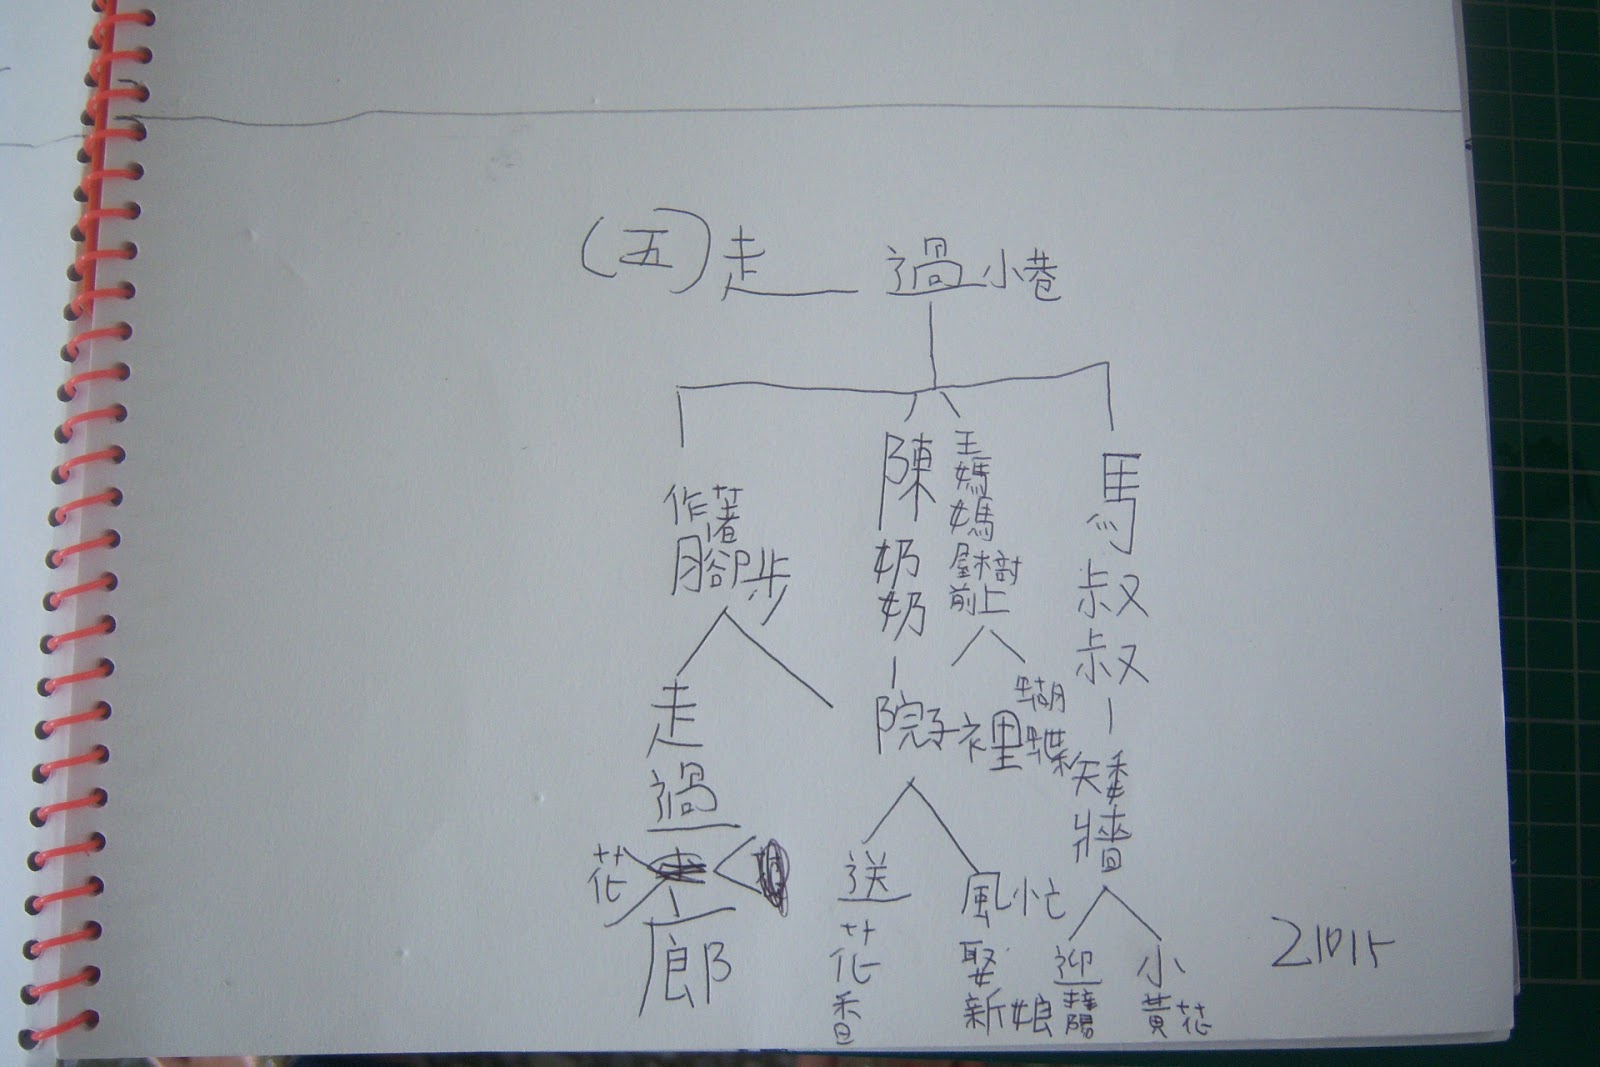 (五)走過小巷
作著
腳步
走過
花
廊
陳奶奶
院子裡
送花香
風忙
娶
新娘
王媽媽
屋前
樹上
蝴蝶
馬叔叔
矮牆
迎
小
黃花
21015